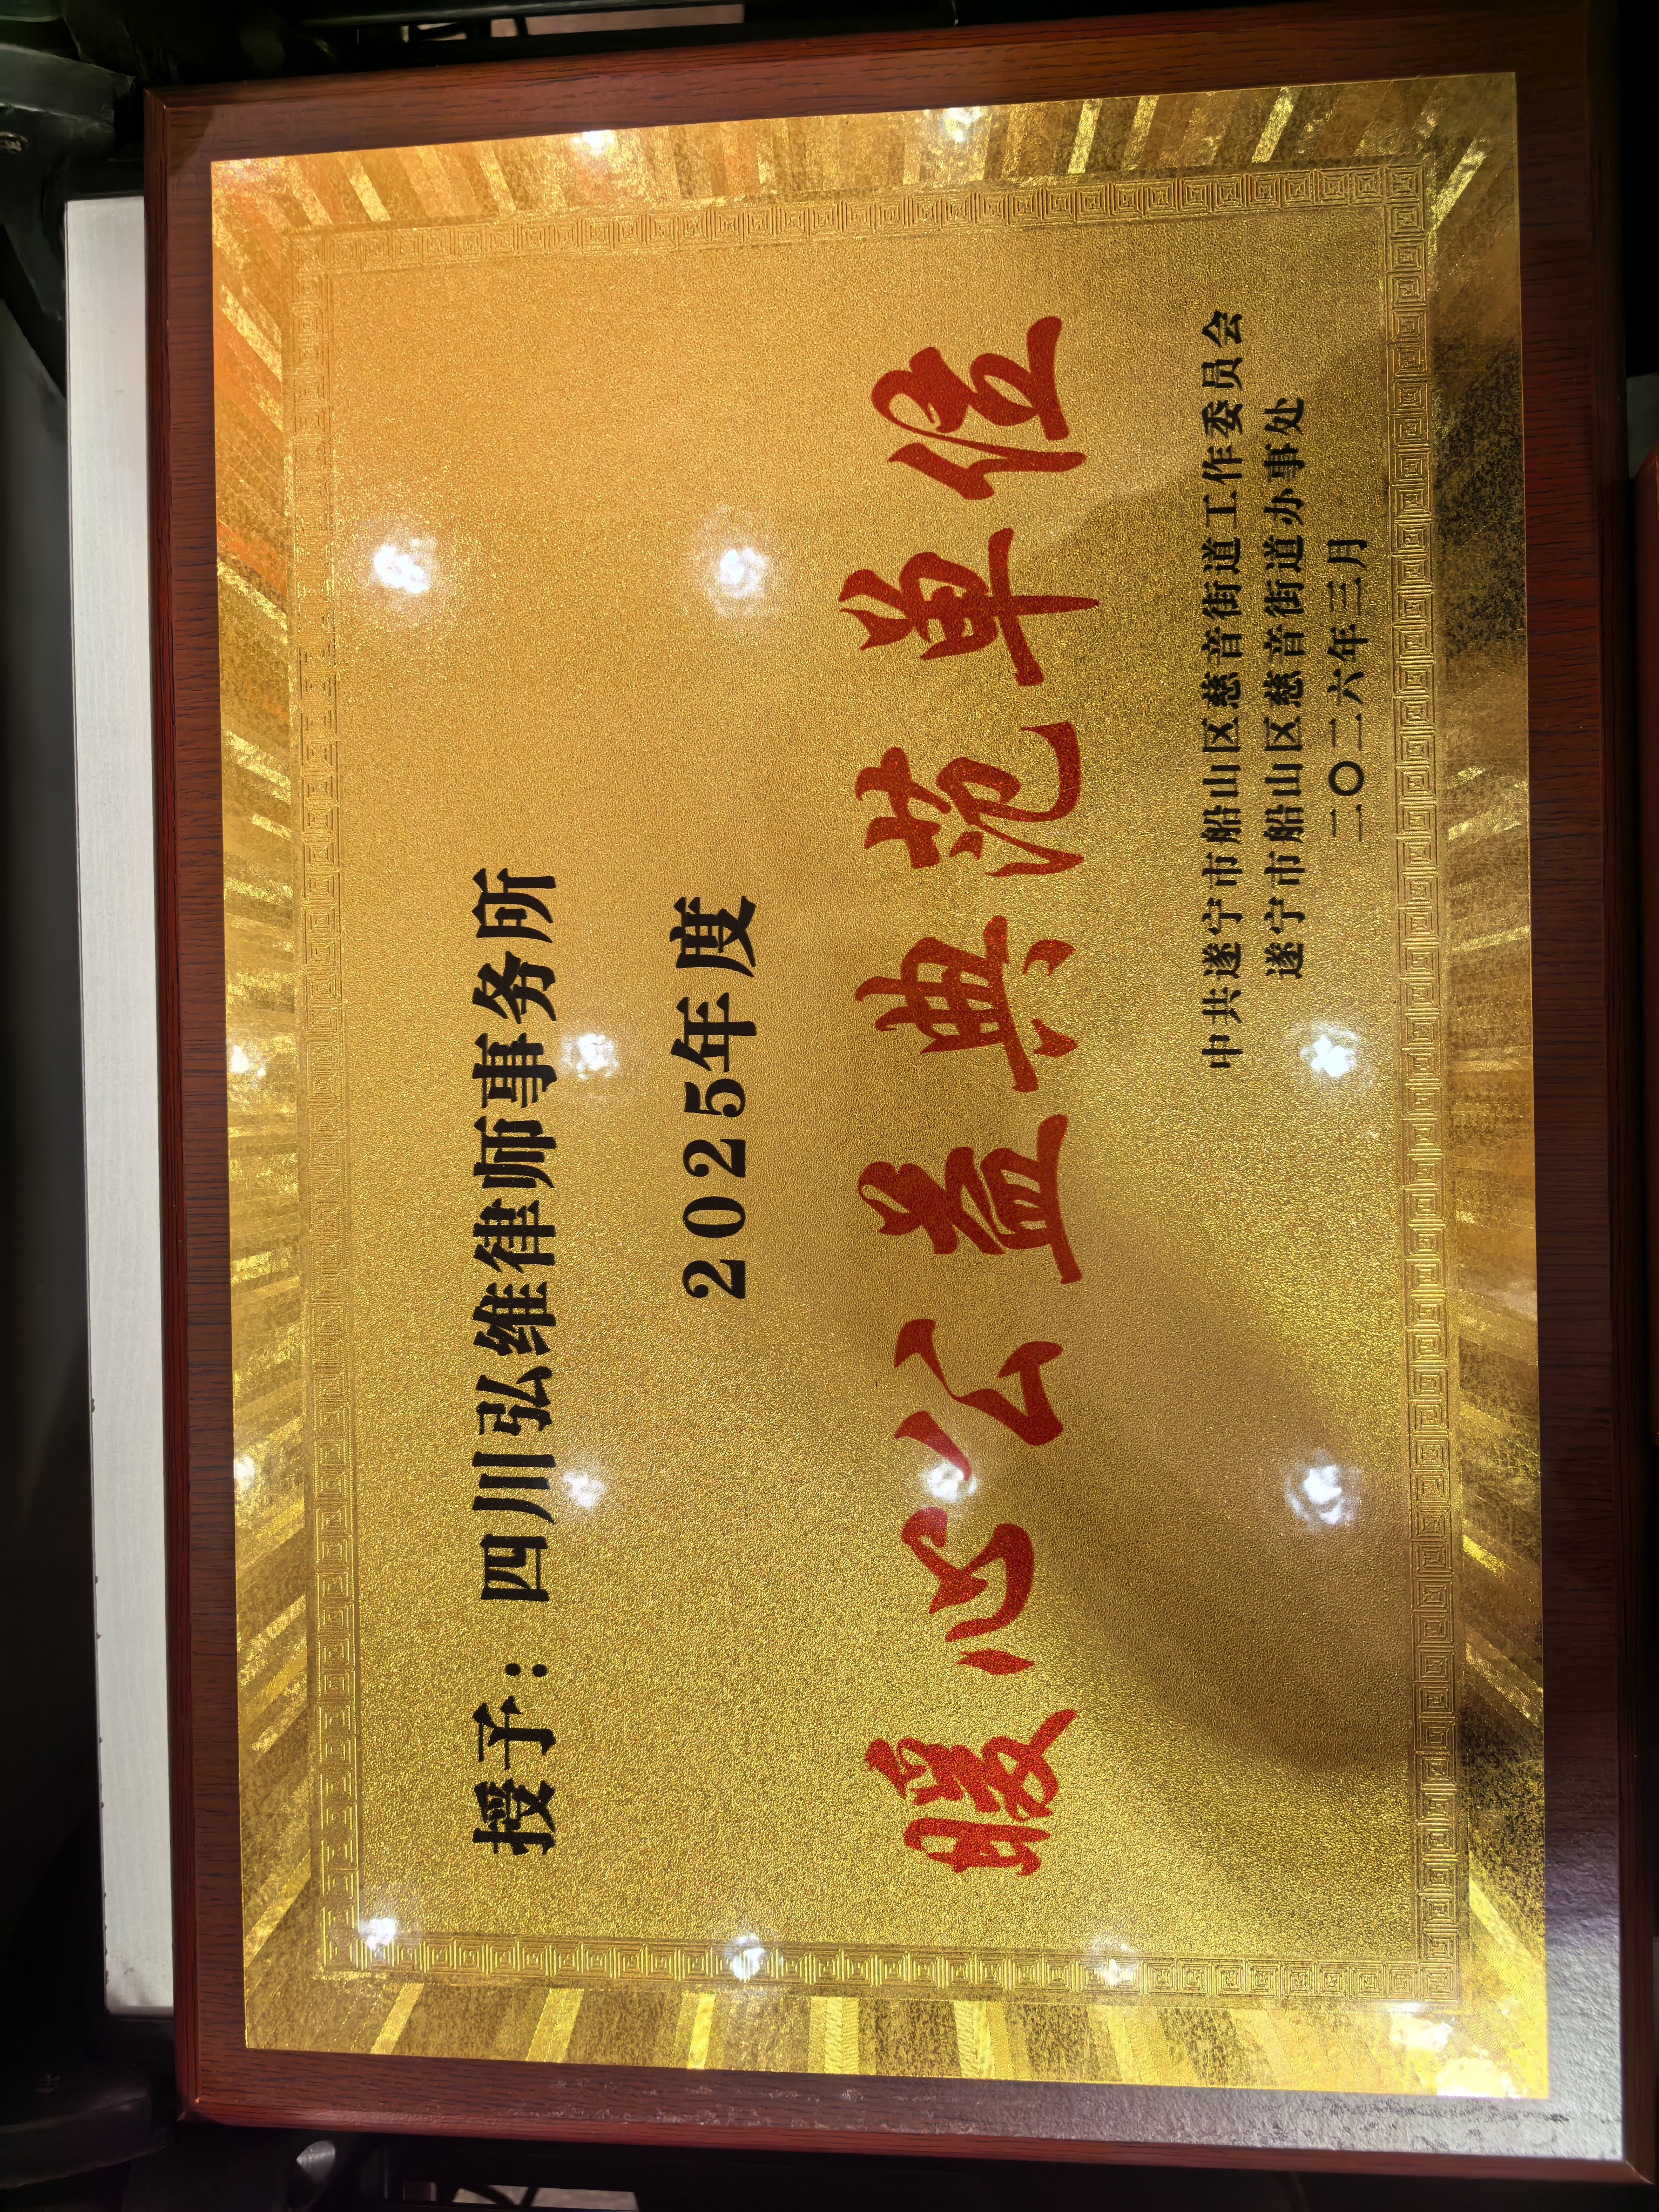 授予：四川弘维律师事务所
2025年度
暖心公益典范单位
中共遂宁市船山区慈音街道工作委员会
遂宁市船山区慈音街道办事处
二〇二六年三月